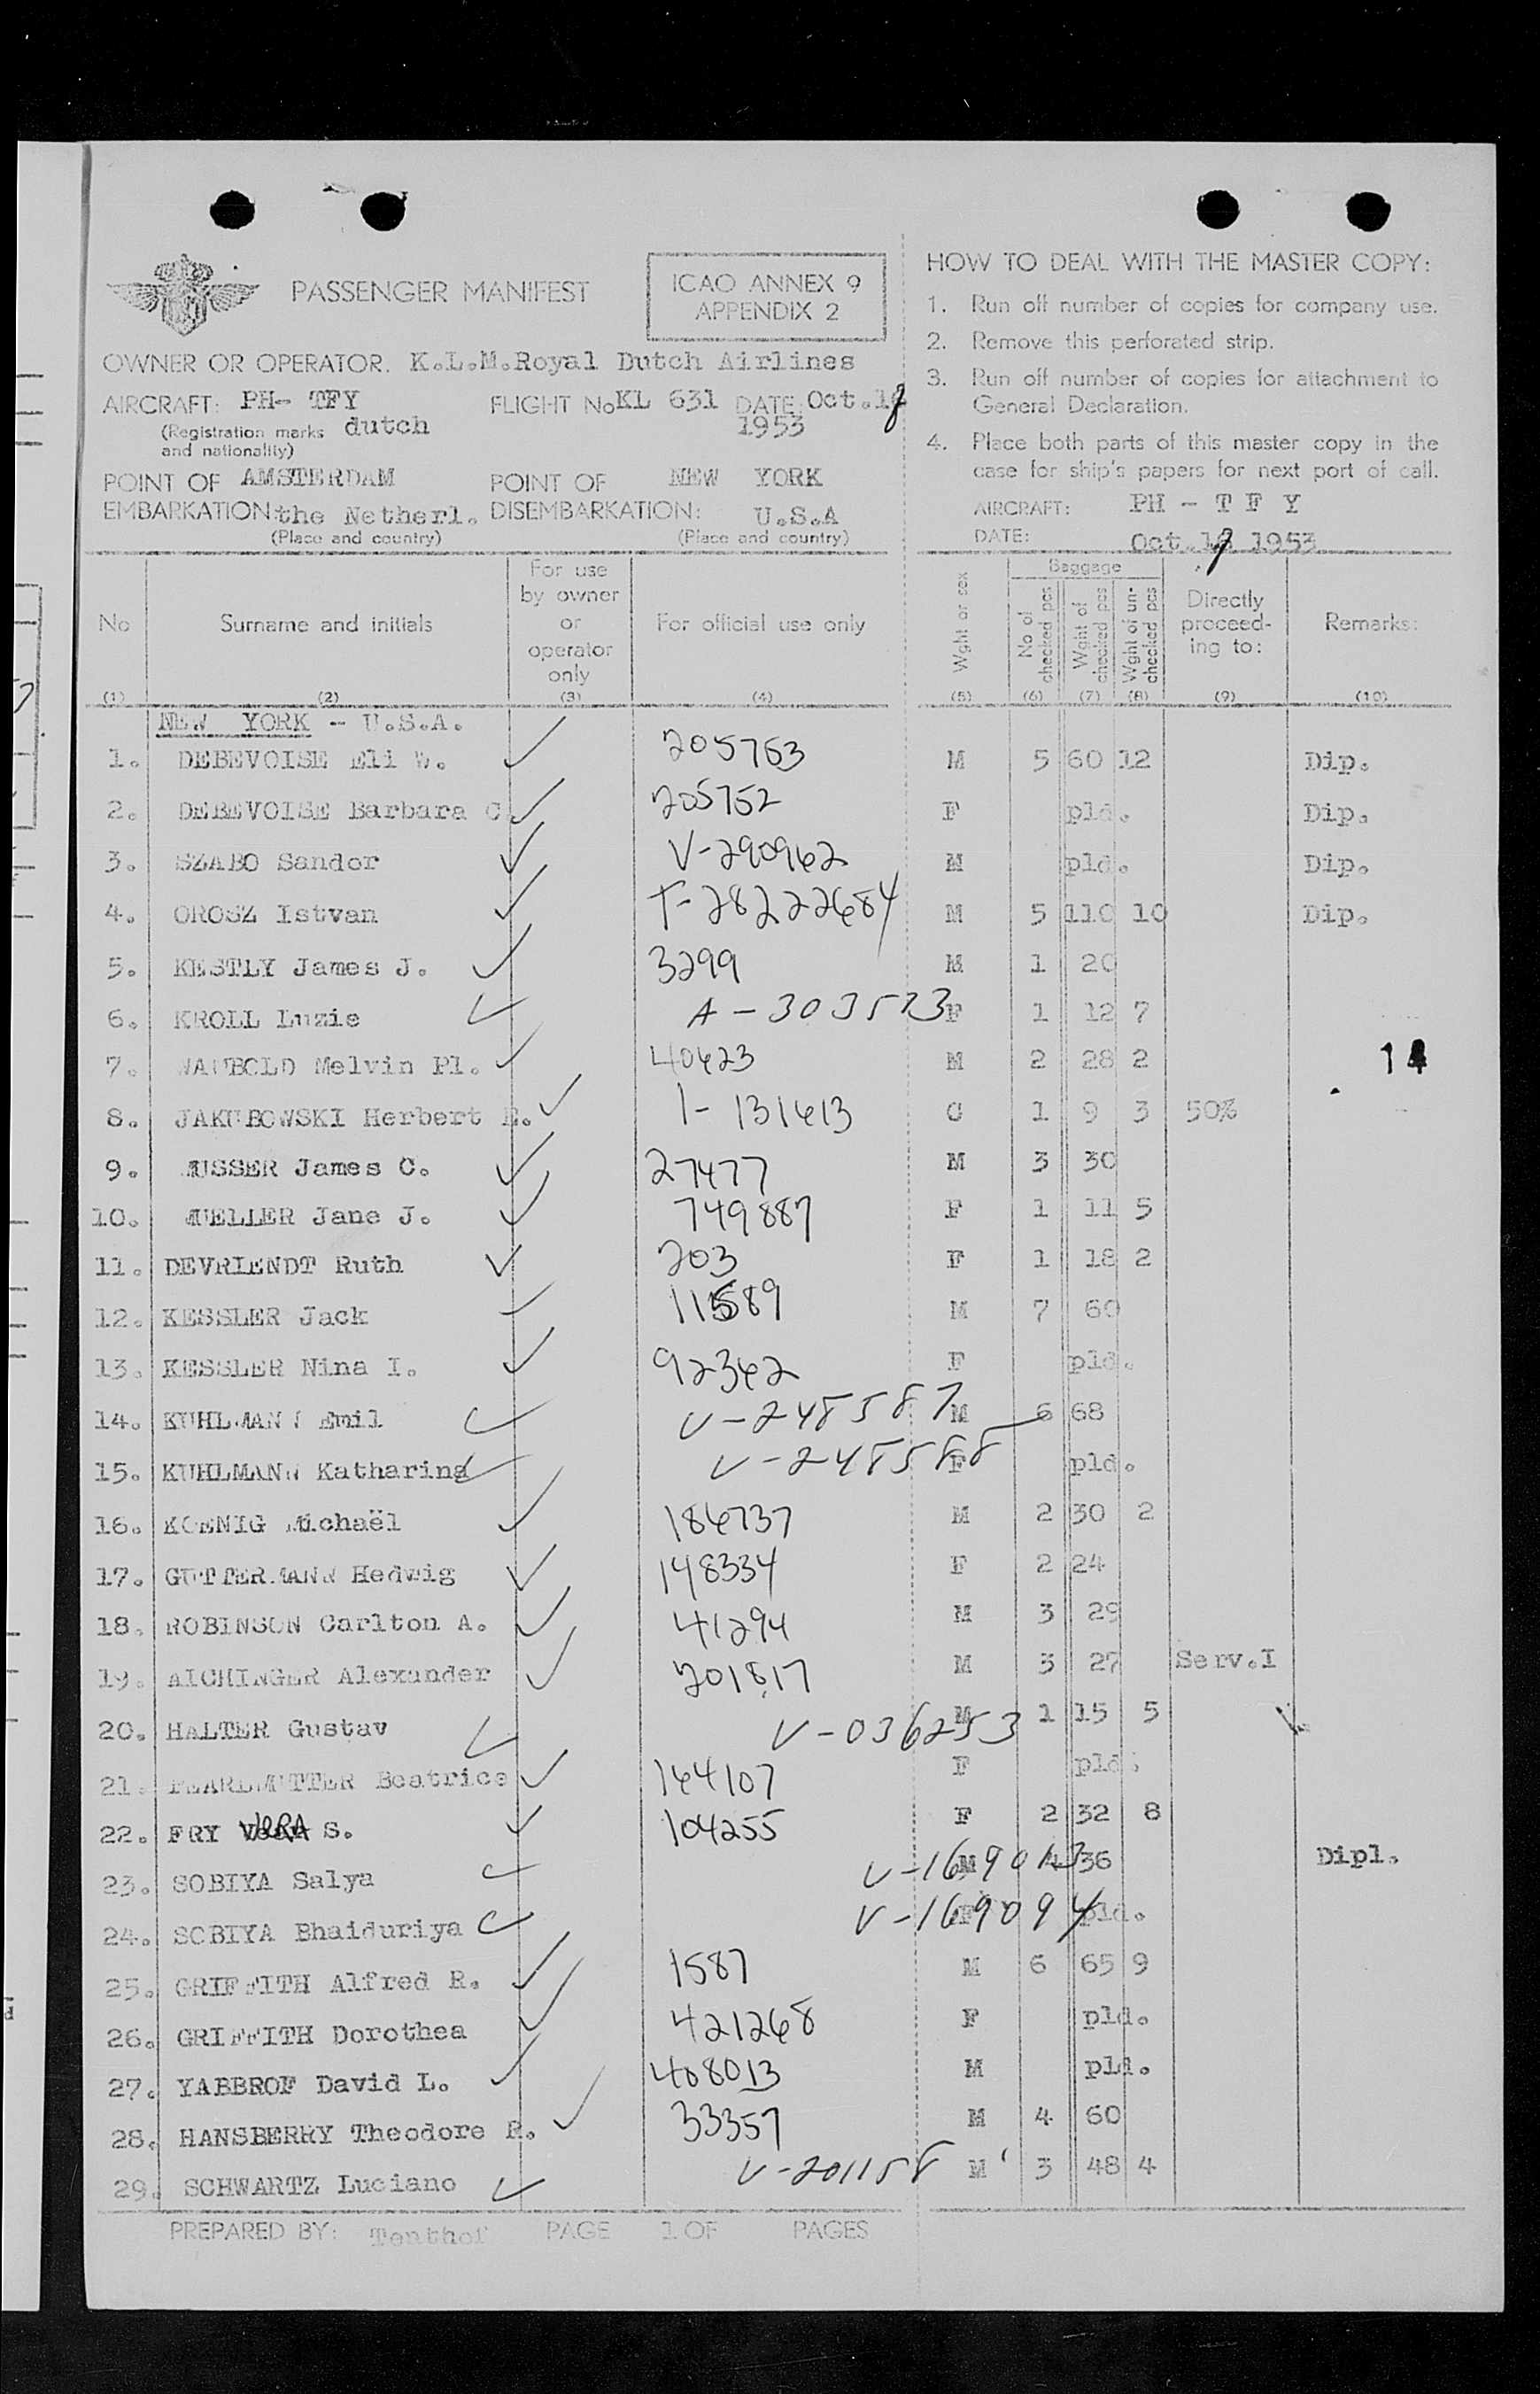 PASSENGER MANIFEST
ICAO ANNEX 9
APPENDIX 2
OWNER OR OPERATOR. K.L.M.Royal Dutch Airlines
AIRCRAFT: PH- TFY FLIGHT No KL 631 DATE: Oct.
(Registration marks and nationality) dutch 1953
POINT OF EMBARKATION: AMSTERDAM the Netherl. POINT OF DISEMBARKATION: NEW YORK U.S.A
(Place and country) (Place and country)
HOW TO DEAL WITH THE MASTER COPY:
1. Run off number of copies for company use.
2. Remove this perforated strip.
3. Run off number of copies for attachment to
General Declaration.
4. Place both parts of this master copy in the
case for ship's papers for next port of call.
AIRCRAFT: PH - T F Y
DATE: Oct. 1953
No (1) Surname and initials (2) For use by owner or operator only (3) For official use only (4) Wght or sex (5) Baggage No of checked pcs (6) Wght of checked pcs (7) Wght of un-checked pcs (8) Directly proceed-ing to: (9) Remarks: (10)
NEW YORK - U.S.A.
1. DEBEVOISE Eli W. ✓ 205753 M 5 60 12 Dip.
2. DEBEVOISE Barbara C. ✓ 205752 F pld. Dip.
3. SZABO Sandor ✓ V-290962 M pld. Dip.
4. OROSZ Istvan ✓ T-28222684 M 5 110 10 Dip.
5. KESTLY James J. ✓ 3299 M 1 20
6. KROLL Luzie ✓ A-303523 F 1 12 7
7. WAUBOLD Melvin Pl. ✓ 40623 M 2 28 2 14
8. JAKUBOWSKI Herbert ✓ 1-131613 C 1 9 3 50%
9. MUSSER James C. ✓ 27477 M 3 30
10. MUELLER Jane J. ✓ 749887 F 1 11 5
11. DEVRIENDT Ruth ✓ 203 F 1 18 2
12. KESSLER Jack ✓ M 7 60
13. KESSLER Nina I. ✓ 92362 F pld.
14. KUHLMANN Emil ✓ V-248587 M 6 68
15. KUHLMANN Katharina ✓ V-248588 F pld.
16. KOENIG Michaël ✓ 186737 M 2 30 2
17. GUTTERMANN Hedwig ✓ 148334 F 2 24
18. ROBINSON Carlton A. ✓ 41294 M 3 29
19. AICHINGER Alexander ✓ 201817 M 3 27 Serv.I
20. HALTER Gustav ✓ V-036253 M 1 15 5
21. PEARLMUTTER Beatrice ✓ 164107 F pld.
22. FRY VERA S. ✓ 104255 F 2 32 8
23. SOBIYA Salya ✓ V-169013 M 4 36 Dipl.
24. SOBIYA Bhaiduriya ✓ V-169094 F pld.
25. GRIFFITH Alfred R. ✓ 1587 M 6 65 9
26. GRIFFITH Dorothea ✓ 421268 F pld.
27. YABBROF David L. ✓ 408013 M pld.
28. HANSBERRY Theodore R. ✓ 33357 M 4 60
29. SCHWARTZ Luciano ✓ V-201158 M 3 48 4
PREPARED BY: Tenthof PAGE 1 OF PAGES